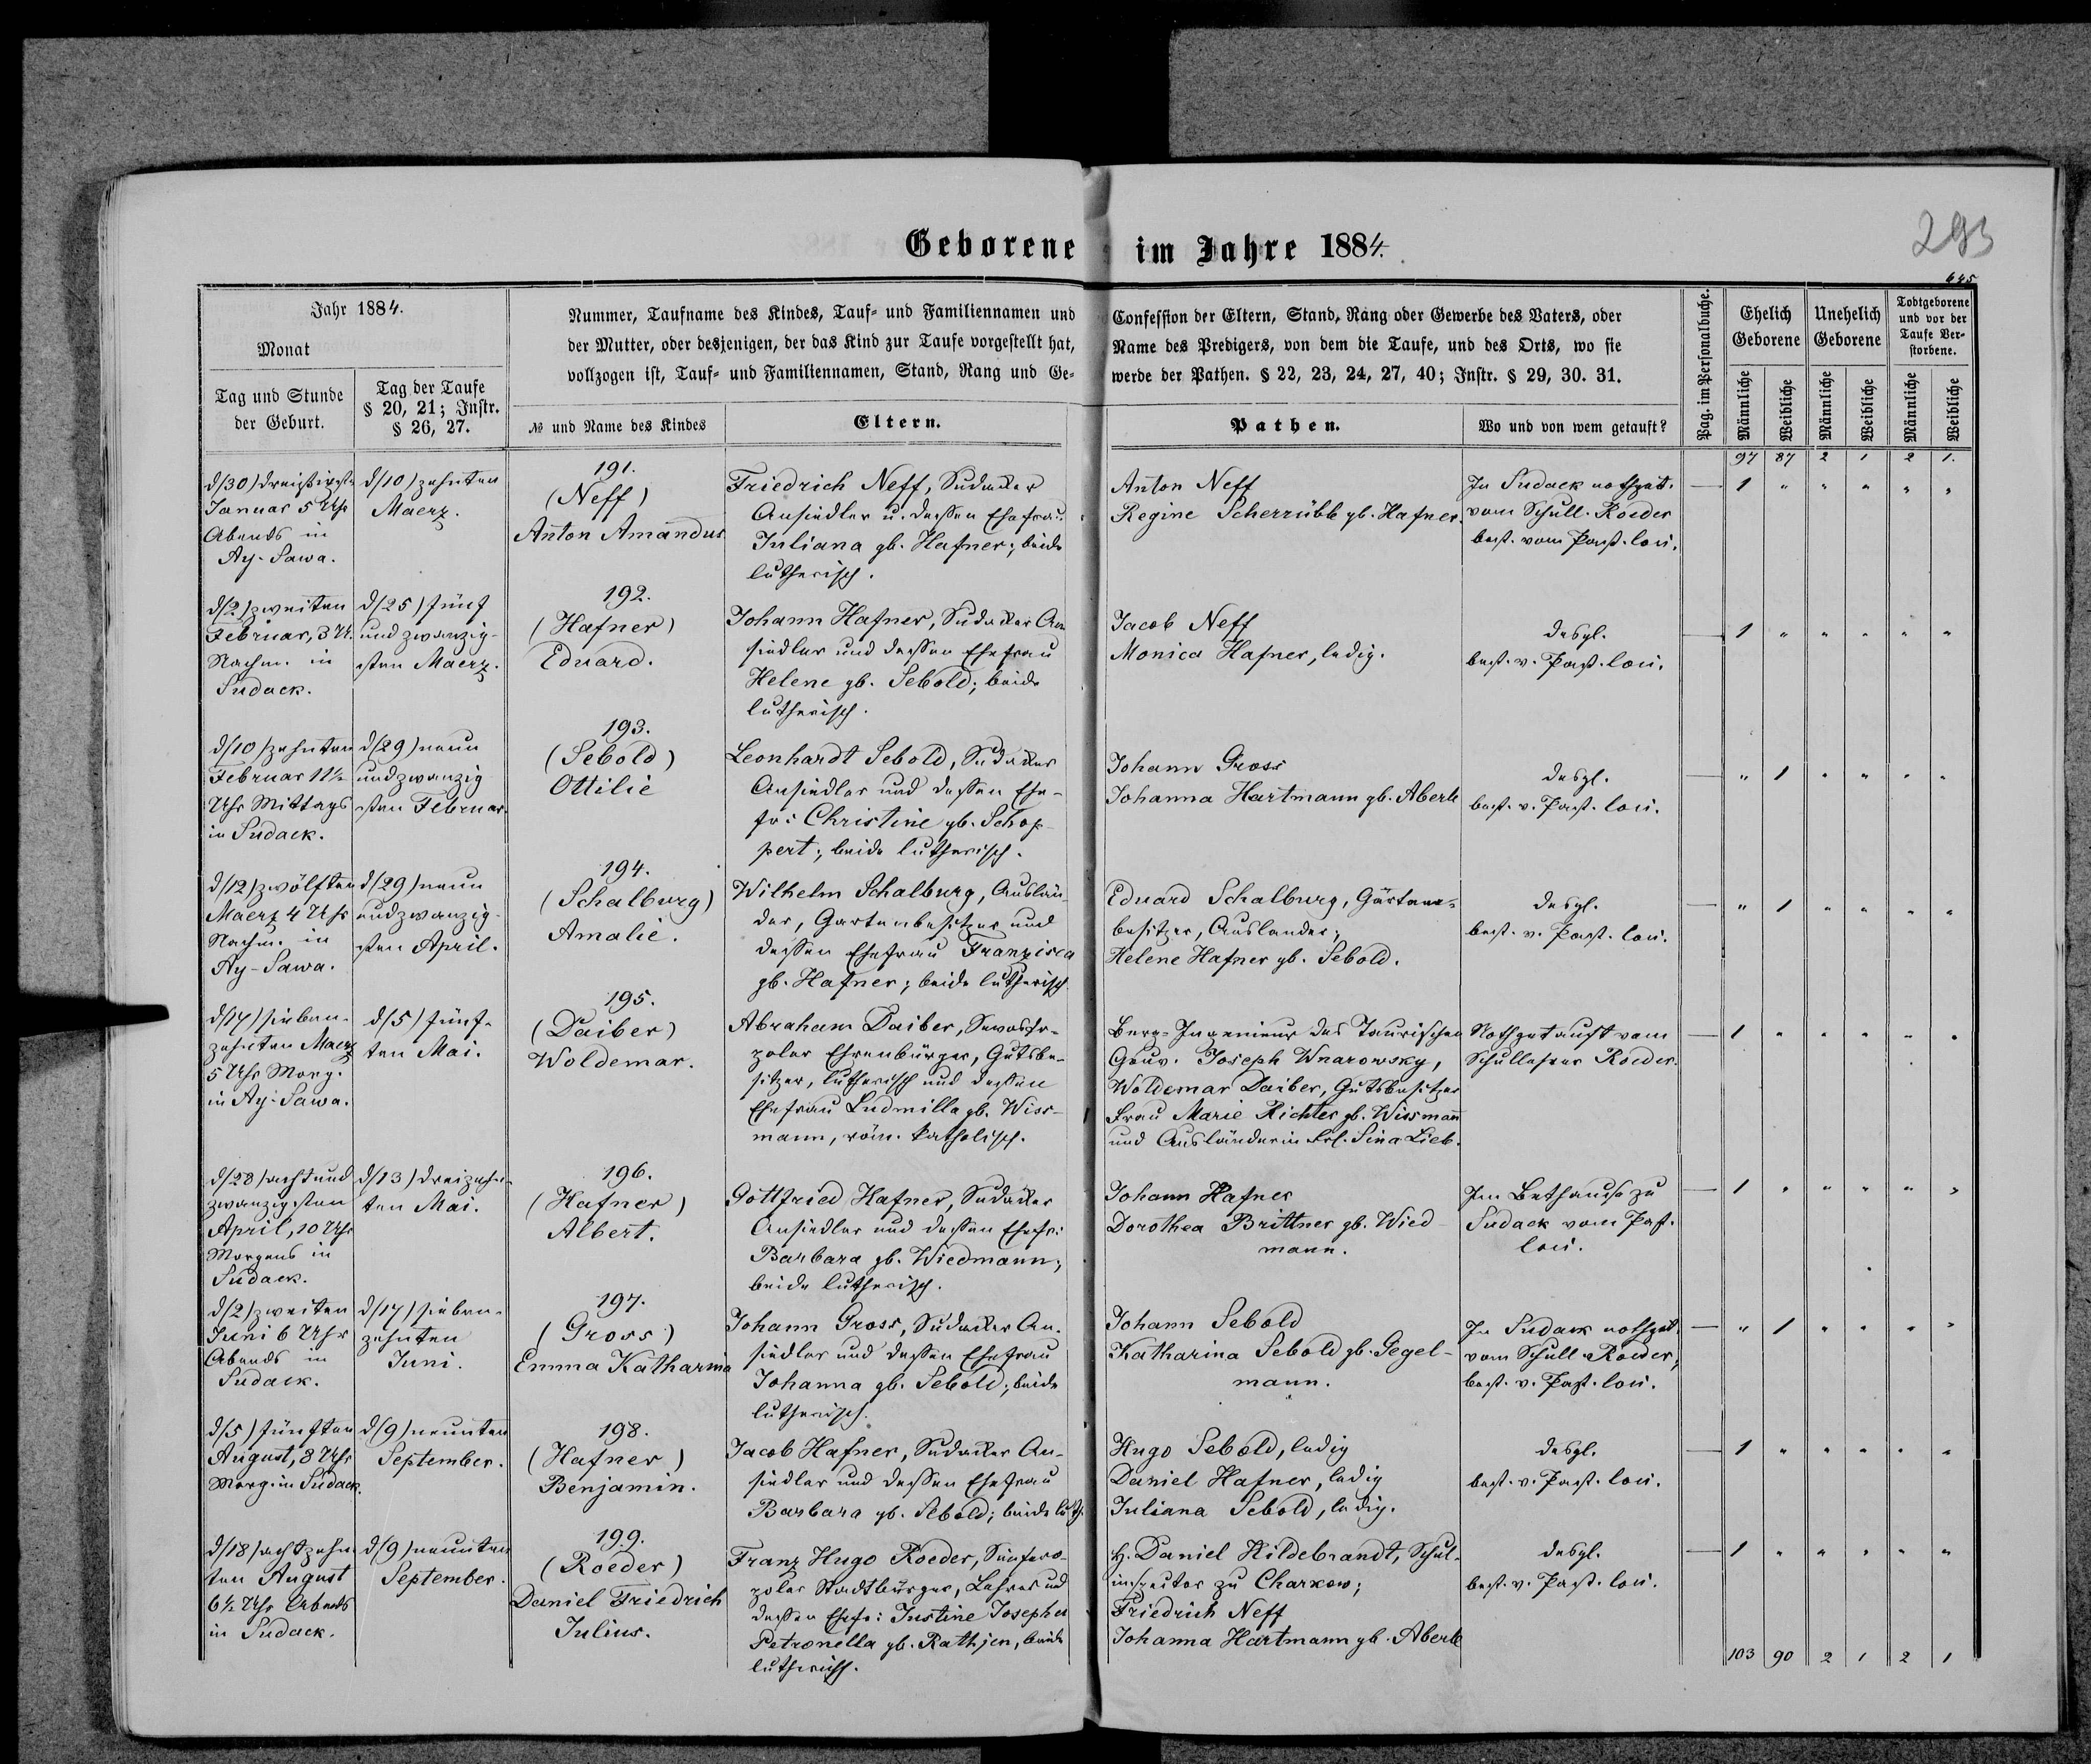 Geborene im Jahre 1884.
293
645
Jahr 1884.
Monat
Tag und Stunde
der Geburt.
Tag der Taufe
§ 20, 21; Instr.
§ 26, 27.
Nummer, Taufname des Kindes, Tauf- und Familiennamen und
der Mutter, oder desjenigen, der das Kind zur Taufe vorgestellt hat,
vollzogen ist, Tauf- und Familiennamen, Stand, Rang und Ge-
№ und Name des Kindes
Eltern.
Confession der Eltern, Stand, Rang oder Gewerbe des Vaters, oder
Name des Predigers, von dem die Taufe, und des Orts, wo sie
werde der Pathen. § 22, 23, 24, 27, 40; Instr. § 29, 30. 31.
Pathen.
Wo und von wem getauft?
Pag. im Personalbuche.
Ehelich
Geborene
Unehelich
Geborene
Todtgeborene
und vor der
Taufe Ver-
storbene.
Männliche
Weibliche
Männliche
Weibliche
Männliche
Weibliche
97 87 2 1 2 1.
d/30) dreißigst.
Januar 5 Uhr
Abends in
Ay-Sawa.
d/10) zehnten
Maerz.
191.
(Neff)
Anton Amandus
Friedrich Neff, Sudacker
Ansiedler u. dessen Ehefrau
Juliana gb. Hafner; beide
lutherisch.
Anton Neff
Regine Scherrübl gb. Hafner.
In Sudack nothget.
vom Schull. Roeder
best. vom Past. Lou.
— 1 " " " " "
d/2) zweiten
Februar, 3 U.
Nachm. in
Sudack.
d/25) fünf
und zwanzig-
sten Maerz.
192.
(Hafner)
Eduard.
Johann Hafner, Sudacker An
siedler und dessen Ehefrau
Helene gb. Sebold; beide
lutherisch.
Jacob Neff
Monica Hafner, ledig.
desgl.
best. v. Past. Lou.
— 1 " " " " "
d/10) zehnten
Februar 11½
Uhr Mittags
in Sudack.
d/29) neun
und zwanzig
sten Februar.
193.
(Sebold)
Ottilie
Leonhardt Sebold, Sudacker
Ansiedler und dessen Ehe-
fr: Christine gb. Schop-
pert; beide lutherisch.
Johann Gross
Johanna Hartmann gb. Aberle
desgl.
best. v. Past. Lou.
— " 1 " " " "
d/12) zwölften
Maerz 4 Uhr
Nachm. in
Ay-Sawa.
d/29) neun
und zwanzig-
sten April.
194.
(Schalburg)
Amalie.
Wilhelm Schalburg, Auslän-
der, Gartenbesitzer und
dessen Ehefrau Franzisca
gb. Hafner; beide lutherisch
Eduard Schalburg, Garten-
besitzer, Auslander;
Helene Hafner gb. Sebold.
desgl.
best. v. Past. Lou.
— " 1 " " " "
d/17) sieben-
zehnten Maerz
5 Uhr Morg.
in Ay-Sawa.
d/5) fünf-
ten Mai.
195.
(Daiber)
Woldemar.
Abraham Daiber, Sewasto-
poler Ehrenbürger, Gutsbe-
sitzer, lutherisch und dessen
Ehefrau Ludmilla gb. Wiss-
mann, röm. katholisch.
Berg-Ingenieur des Taurischen
Gouv. Joseph Wnarowsky,
Woldemar Daiber, Gutsbesitzer
Frau Marie Richter gb. Wissmann
und Ausländerin Frl. Sina Lieb.
Nothgetauft vom
Schullehrer Roeder.
— 1 " " " " "
d/28) acht und
zwanzigsten
April, 10 Uhr
Morgens in
Sudack.
d/13) dreizehn-
ten Mai.
196.
(Hafner)
Albert.
Gottfried Hafner, Sudacker
Ansiedler und dessen Ehefr:
Barbara gb. Wiedmann;
beide lutherisch.
Johann Hafner
Dorothea Brittner gb. Wied-
mann.
Im Bethause zu
Sudack vom Past.
Lou.
— 1 " " " " "
d/2) zweiten
Juni 6 Uhr
Abends in
Sudack.
d/17) sieben-
zehnten
Juni.
197.
(Gross)
Emma Katharina
Johann Gross, Sudacker An-
siedler und dessen Ehefrau
Johanna gb. Sebold; beide
lutherisch.
Johann Sebold
Katharina Sebold gb. Gegel-
mann.
In Sudack nothget.
vom Schull. Roeder,
best. v. Past. Lou.
— " 1 " " " "
d/5) fünften
August, 8 Uhr
Morg. in Sudack.
d/9) neunten
September.
198.
(Hafner)
Benjamin.
Jacob Hafner, Sudacker An-
siedler und dessen Ehefrau
Barbara gb. Sebold; beide luth.
Hugo Sebold, ledig
Daniel Hafner, ledig
Juliana Sebold, ledig.
desgl.
best. v. Past. Lou.
— 1 " " " " "
d/18) achtzehn-
ten August
6½ Uhr Abends
in Sudack.
d/9) neunten
September.
199.
(Roeder)
Daniel Friedrich
Julius.
Franz Hugo Roeder, Simfero-
poler Stadtbürger, Lehrer und
dessen Ehefr: Justine Josepha
Petronella gb. Rathjen, beide
lutherisch.
H. Daniel Hildebrandt, Schul-
inspector zu Charkow;
Friedrich Neff
Johanna Hartmann gb. Aberle
desgl.
best. v. Past. Lou.
— 1 " " " " "
103 90 2 1 2 1